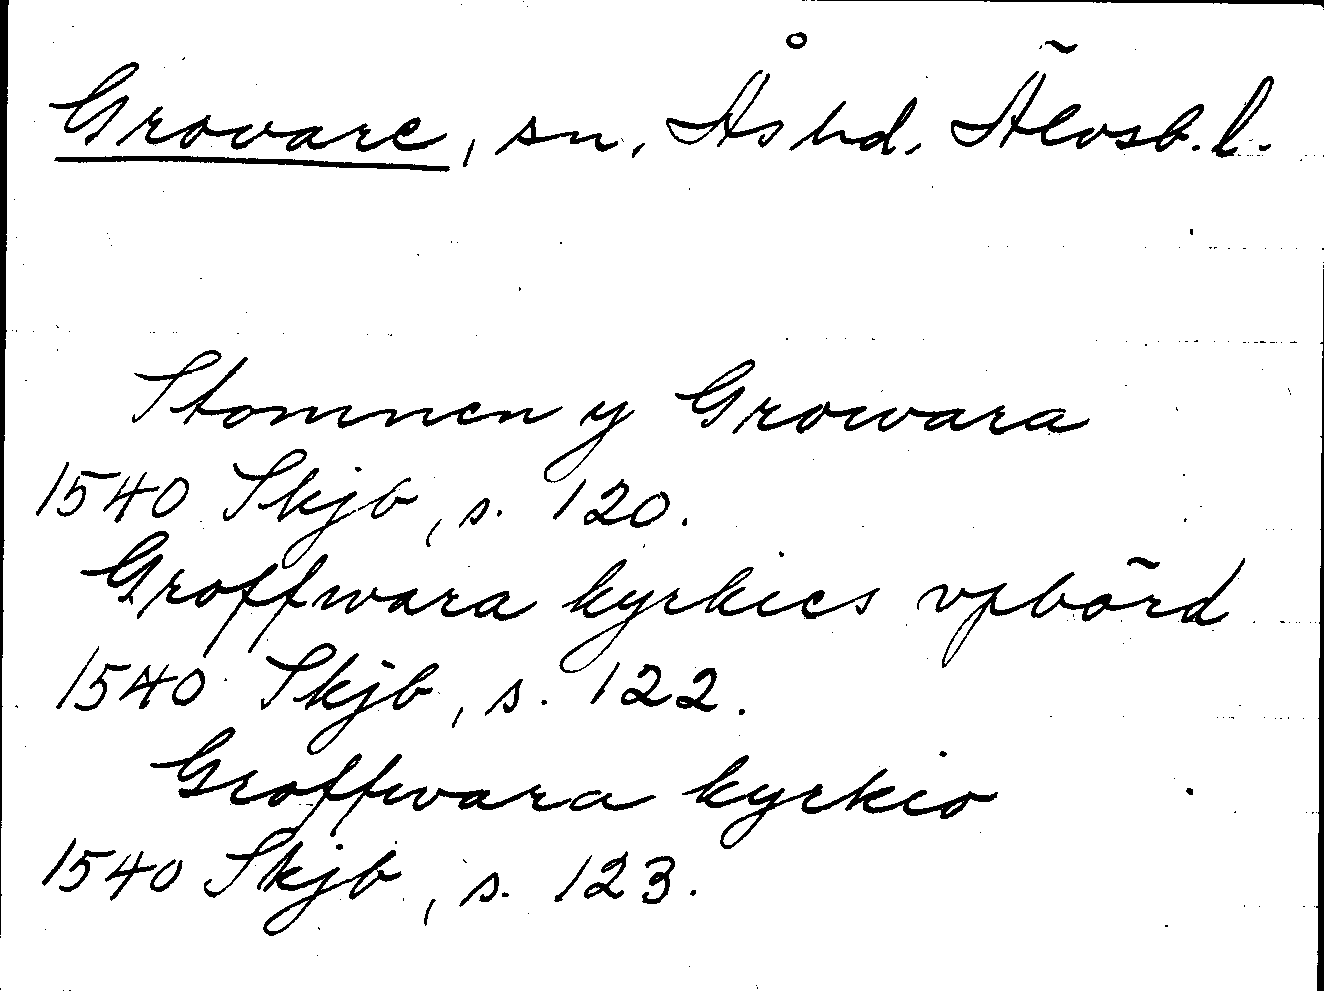 Grovare, sn, Ås hd. Älvsb. l.
Stommen y Growara
1540 Skjb, s. 120.
Groffwara kyrkies vpbörd
1540 Skjb, s. 122.
Groffwara kyrkio
1540 Skjb, s. 123.